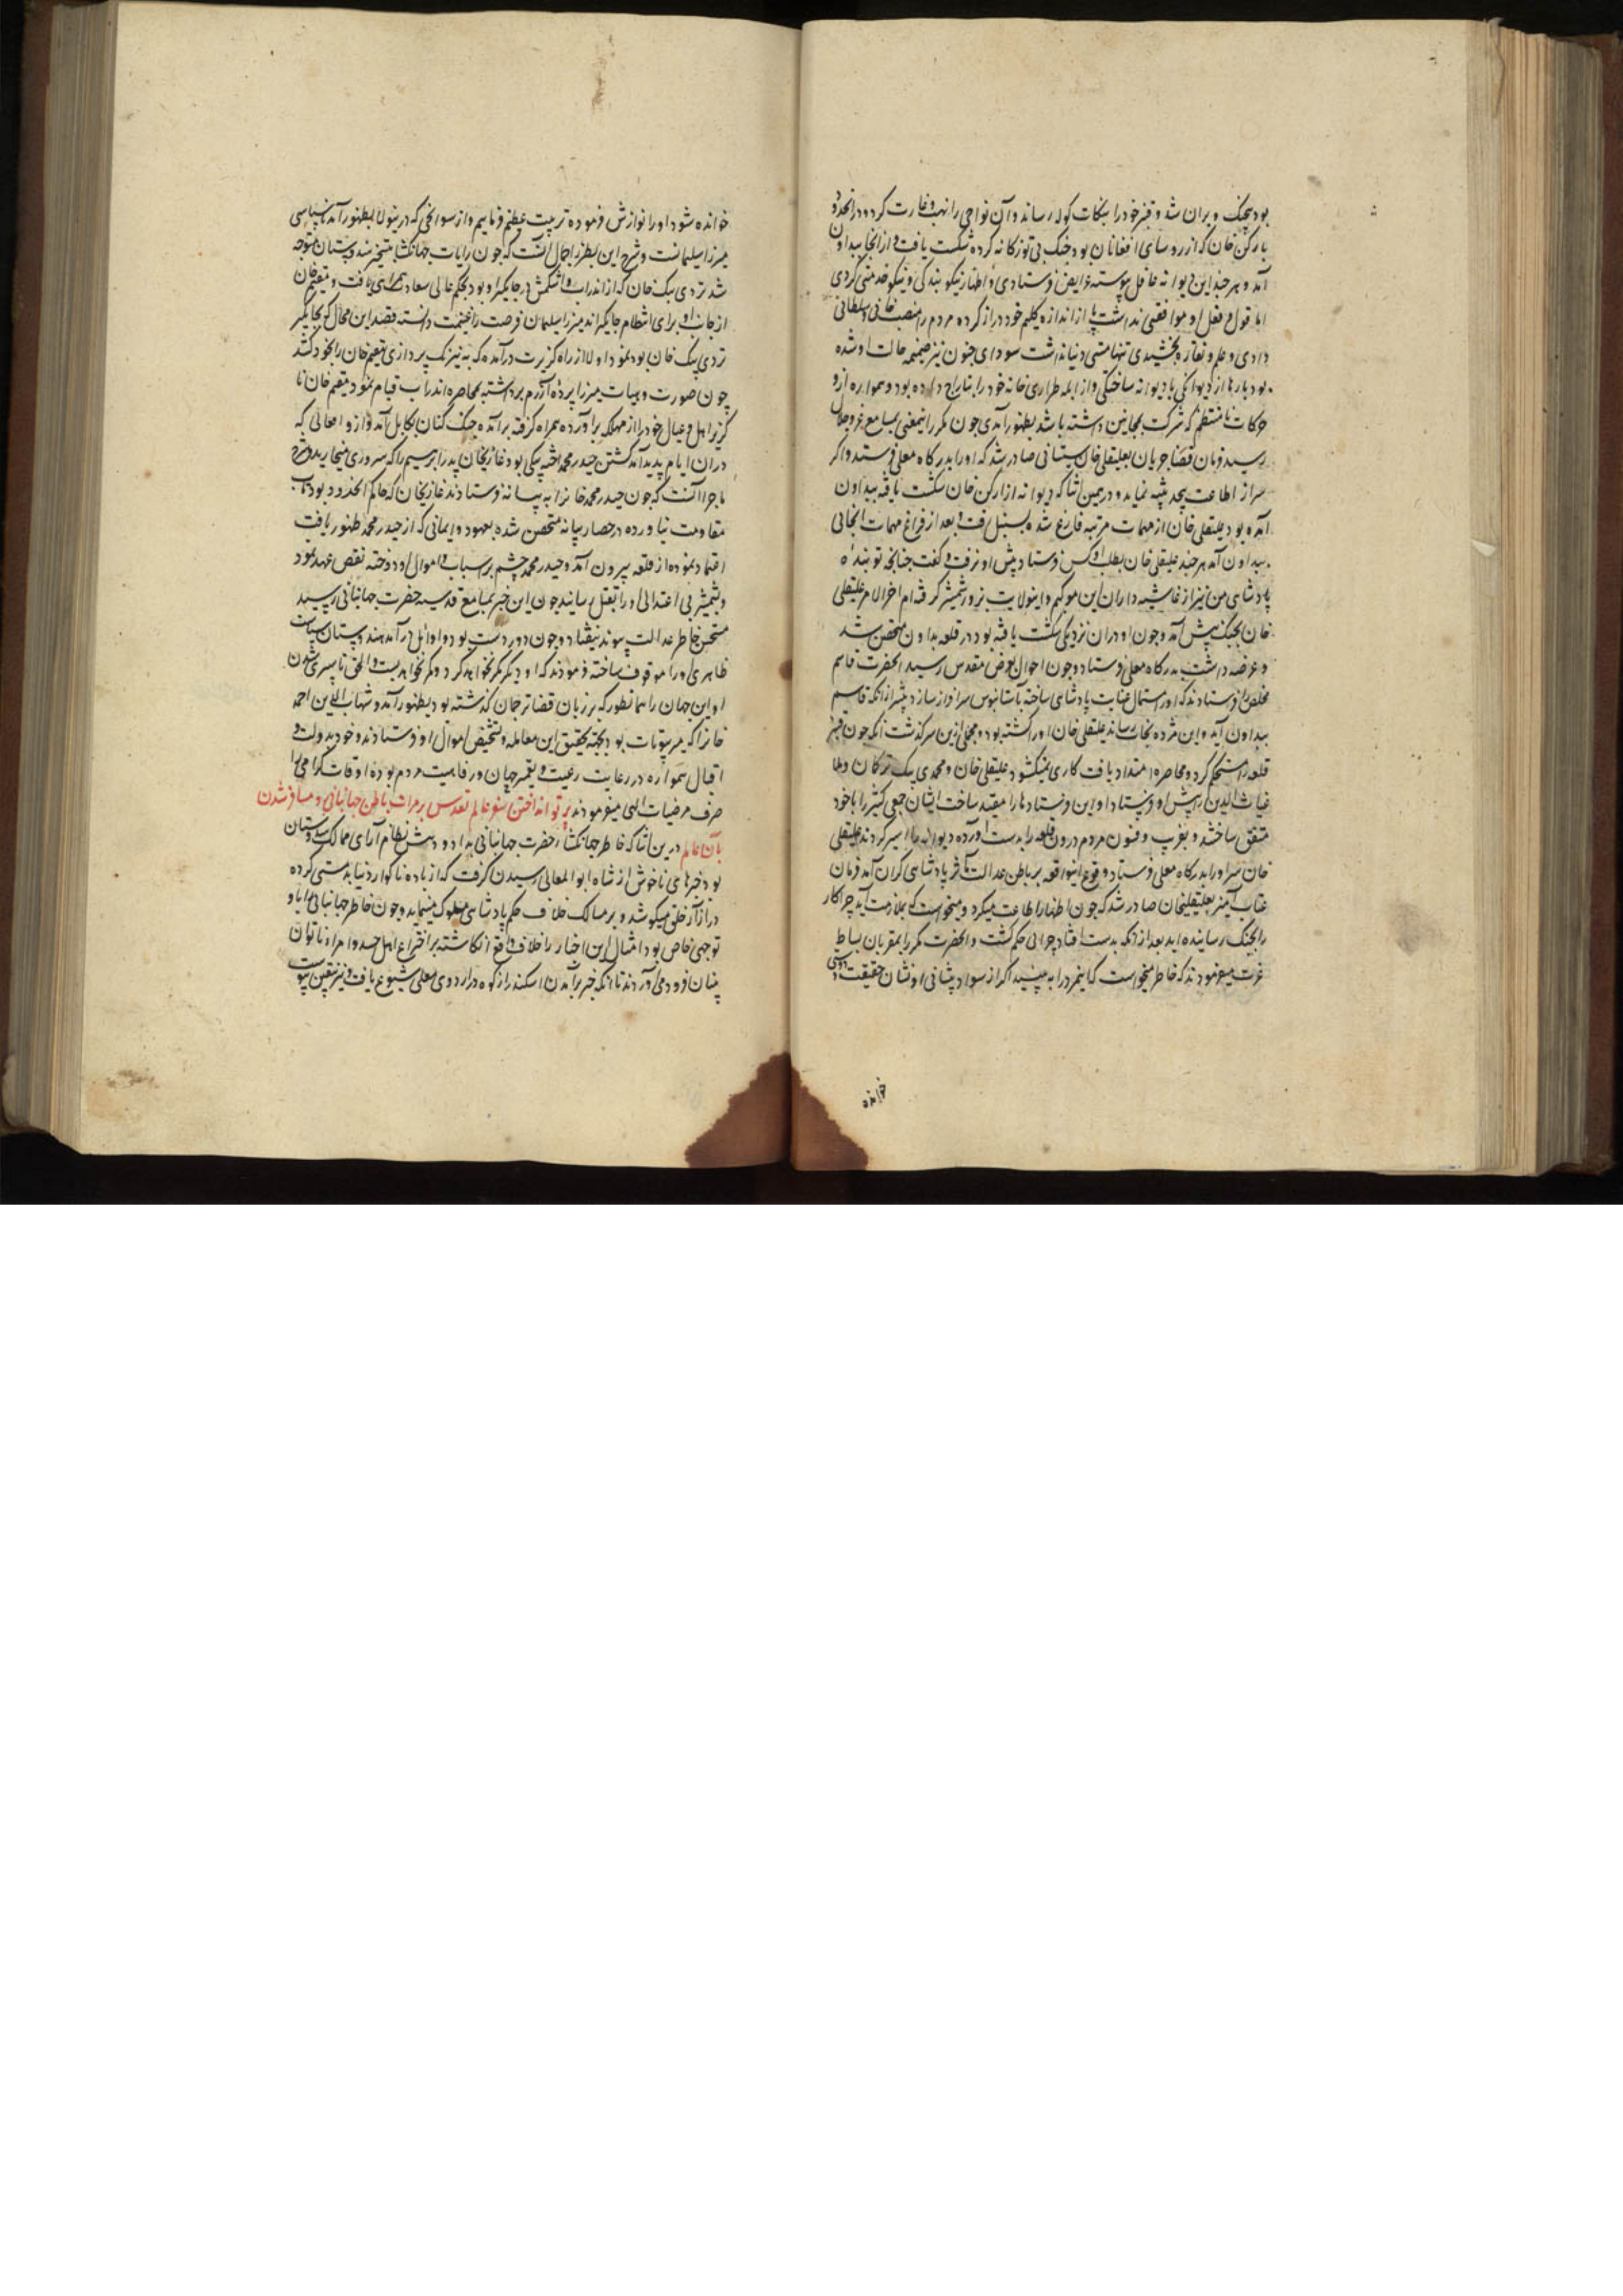 بود بجنگ ویران شد و قنبر خود را بنکات کوله رساند و آن نواحی را نهب و غارت کرد و در انحدود
با رکن خان که از روسای افغانان بود جنک بی توزکانه کرده شکست یافت و از انجا ببداون
آمد و هر چند این دیوانه عاقل پیوسته عرایض فرستادی و اظهار نیکو بندکی و نیکو خدمتی کردی
اما قول و فعل او موافقتی نداشت پا از اندازه کلیم خود دراز کرده مردم را منصب خانی و سلطانی
دادی و علم و نقاره بخشیدی تنها مستی دنیا نداشت سودای جنون نیز ضمیمه حالت او شده
بود بارها از دیوانکی یا دیوانه ساختکی و از ابله طراری خانه خود را بتاراج داده بود و همواره ازو
حرکات نامنتظم که شرکت بمجانین داشته باشد بظهور آمدی چون مکرر اینمعنی بمسامع عز و جلال
رسید فرمان قضا جریان بعلیقلی خان سیستانی صادر شد که او را بدرکاه معلی فرستد و اکر
سر از اطاعت پیچد تنبیه نماید و درهمین اثنا که دیوانه از رکن خان شکست یافته ببداون
آمده بود علیقلی خان از مهمات مرتبه فارغ شده بسنبل رفت و بعد از فراغ مهمات انجائی
ببداون آمد هر چند علیقلی خان بطلب او کس فرستاد پیش او نرفت و کفت چنانچه تو بنده
پادشاهی من نیز از غاشیه داران این موکبم و اینولایت بزور شمشیر کرفته ام اخر الامر علیقلی
خان بجنک پیش آمد و چون او دران نزدیکی شکست یافته بود در قلعه بداون متحصن شد
و عرضه داشت بدرکاه معلی فرستاد و چون احوال بعرض مقدس رسید انحضرت قاسم
مخلص را فرستادند که او را استمال عنایت پادشاهی ساخته بآستانبوس سرافراز سازد پیشتر از انکه قاسم
ببداون آید و این مژده بخان رساند علیقلی خان او را کشته بود و مجملی ازین سرکذشت آنکه چون قنبر
قلعه را مستحکم کرد و محاصره امتداد یافت کاری نمیکشود علیقلی خان و محمدی بیک ترکان و ملا
غیاث الدین را پیش او فرستاد و او این فرستادها را مقید ساخت ایشان جمعی کثیر را با خود
متفق ساختند و بفریب و فسون مردم درون قلعه را بدست آورده دیوانه را اسیر کردند علیقلی
خان سر او را بدرکاه معلی فرستاد وقوع اینواقعه بر باطن عدالت مآثر پادشاهی کران آمد فرمان
عتاب آمیز بعلیقلیخان صادر شد که چون اظهار اطاعت میکرد و میخواست که بملازمت آید چرا کار
را بجنک رسانیده اید بعد از انکه بدست افتاد چرا بی حکم کشت و انحضرت مکرر بمقربان بساط
عزت میفرمودند که خاطر میخواست که اینمرد را به بینیم اکر از سواد پیشانی او نشان حقیقت و درستی
خوانده
خوانده شود او را نوازش فرموده تربیت عظیم فرماییم و از سوانحی که درینولا بظهور آمد ناسپاسی
میرزا سلیمانست و شرح این بطرز اجمال آنست که چون رایات جهانکشا متسخیر هندوستان متوجه
شد تردی بیک خان که از اندراب و اشکمش در جایکیر او بود بحکم عالی سعادت همراهی یافت و مقیم خان
از جانب او برای انتظام جایکیر ماند میرزا سلیمان فرصت را غنیمت دانسته قصد این محال که بجایکیر
تردی بیک خان بود نمود اولا از راه کزیرت درآمده که به نیرنک پردازی مقیم خان را بخود کشد
چون صورت نیافت میرزا پرده آزرم برداشته بمحاصره اندراب قیام نمود مقیم خان نا
کزیر اهل و عیال خود را از مهلکه برآورده همراه کرفته برآمده جنک کنان بکابل آمد و از وقایعی که
دران ایام پدید آمد کشتن حیدر محمد اخته بیکی بود غازیخان پدر ابراهیم را که سروری میخارید و شرح
ماجرا آنست که چون حیدر محمد خان را به بیانه فرستادند غازیخان که حاکم انحدود بود تاب
مقاومت نیاورده در حصار بیانه متحصن شده بعهود و ایمانی که از حیدر محمد ظهور یافت
اعتماد نموده از قلعه بیرون آمد و حیدر محمد چشم بر اسباب و اموال او دوخته نقض عهد نمود
و بشمشیر بی اعتدالی او را بقتل رسانید چون این خبر بمسامع قدسیه حضرت جهانبانی رسید
مستحسن خاطر عدالت پیوند نیفتاد و چون دوردست بود و اوایل درآمد هندوستان سیاست
ظاهری او را موقوف ساخته فرمودند که او دیکر کمر نخواهد بست والحق تا سپری شدن
او این جهان را همانطور که بر زبان قضا ترجمان کذشته بود بظهور آمد و شهاب الدین احمد
خانرا که میر بیوتات بود بجهة تحقیق این معامله و تشخیص اموال او فرستادند و خود بدولت و
اقبال همواره در رعایت رعیت و تعمیر جهان و رفاهیت مردم بوده اوقات کرامی را
صرف مرضیات الهی میفرمودند پرتو انداختن سفر عالم تقدس بر مرات باطن جهانبانی و مسافر شدن
بآن عالم درین اثنا که خاطر جهانکشا حضرت جهانبانی بداد و دهش نظام آرای ممالک هندوستان
بود خبرهای ناخوش از شاه ابوالمعالی رسیدن کرفت که از باده ناکوار دنیا بدمستی کرده
در آزار خلق میکوشد و بر مسالک خلاف حکم پادشاهی سلوک مینماید و چون خاطر جهانبانی را با او
توجهی خاص بود امثال این اخبار را خلاف واقع انکاشته بر اختراع اهل حسد و امراء ناتوان
بینان فرود می آوردند تا آنکه خبر برآمدن اسکندر از کوه در اردوی معلی شیوع یافت و نیز بیقین پیوست